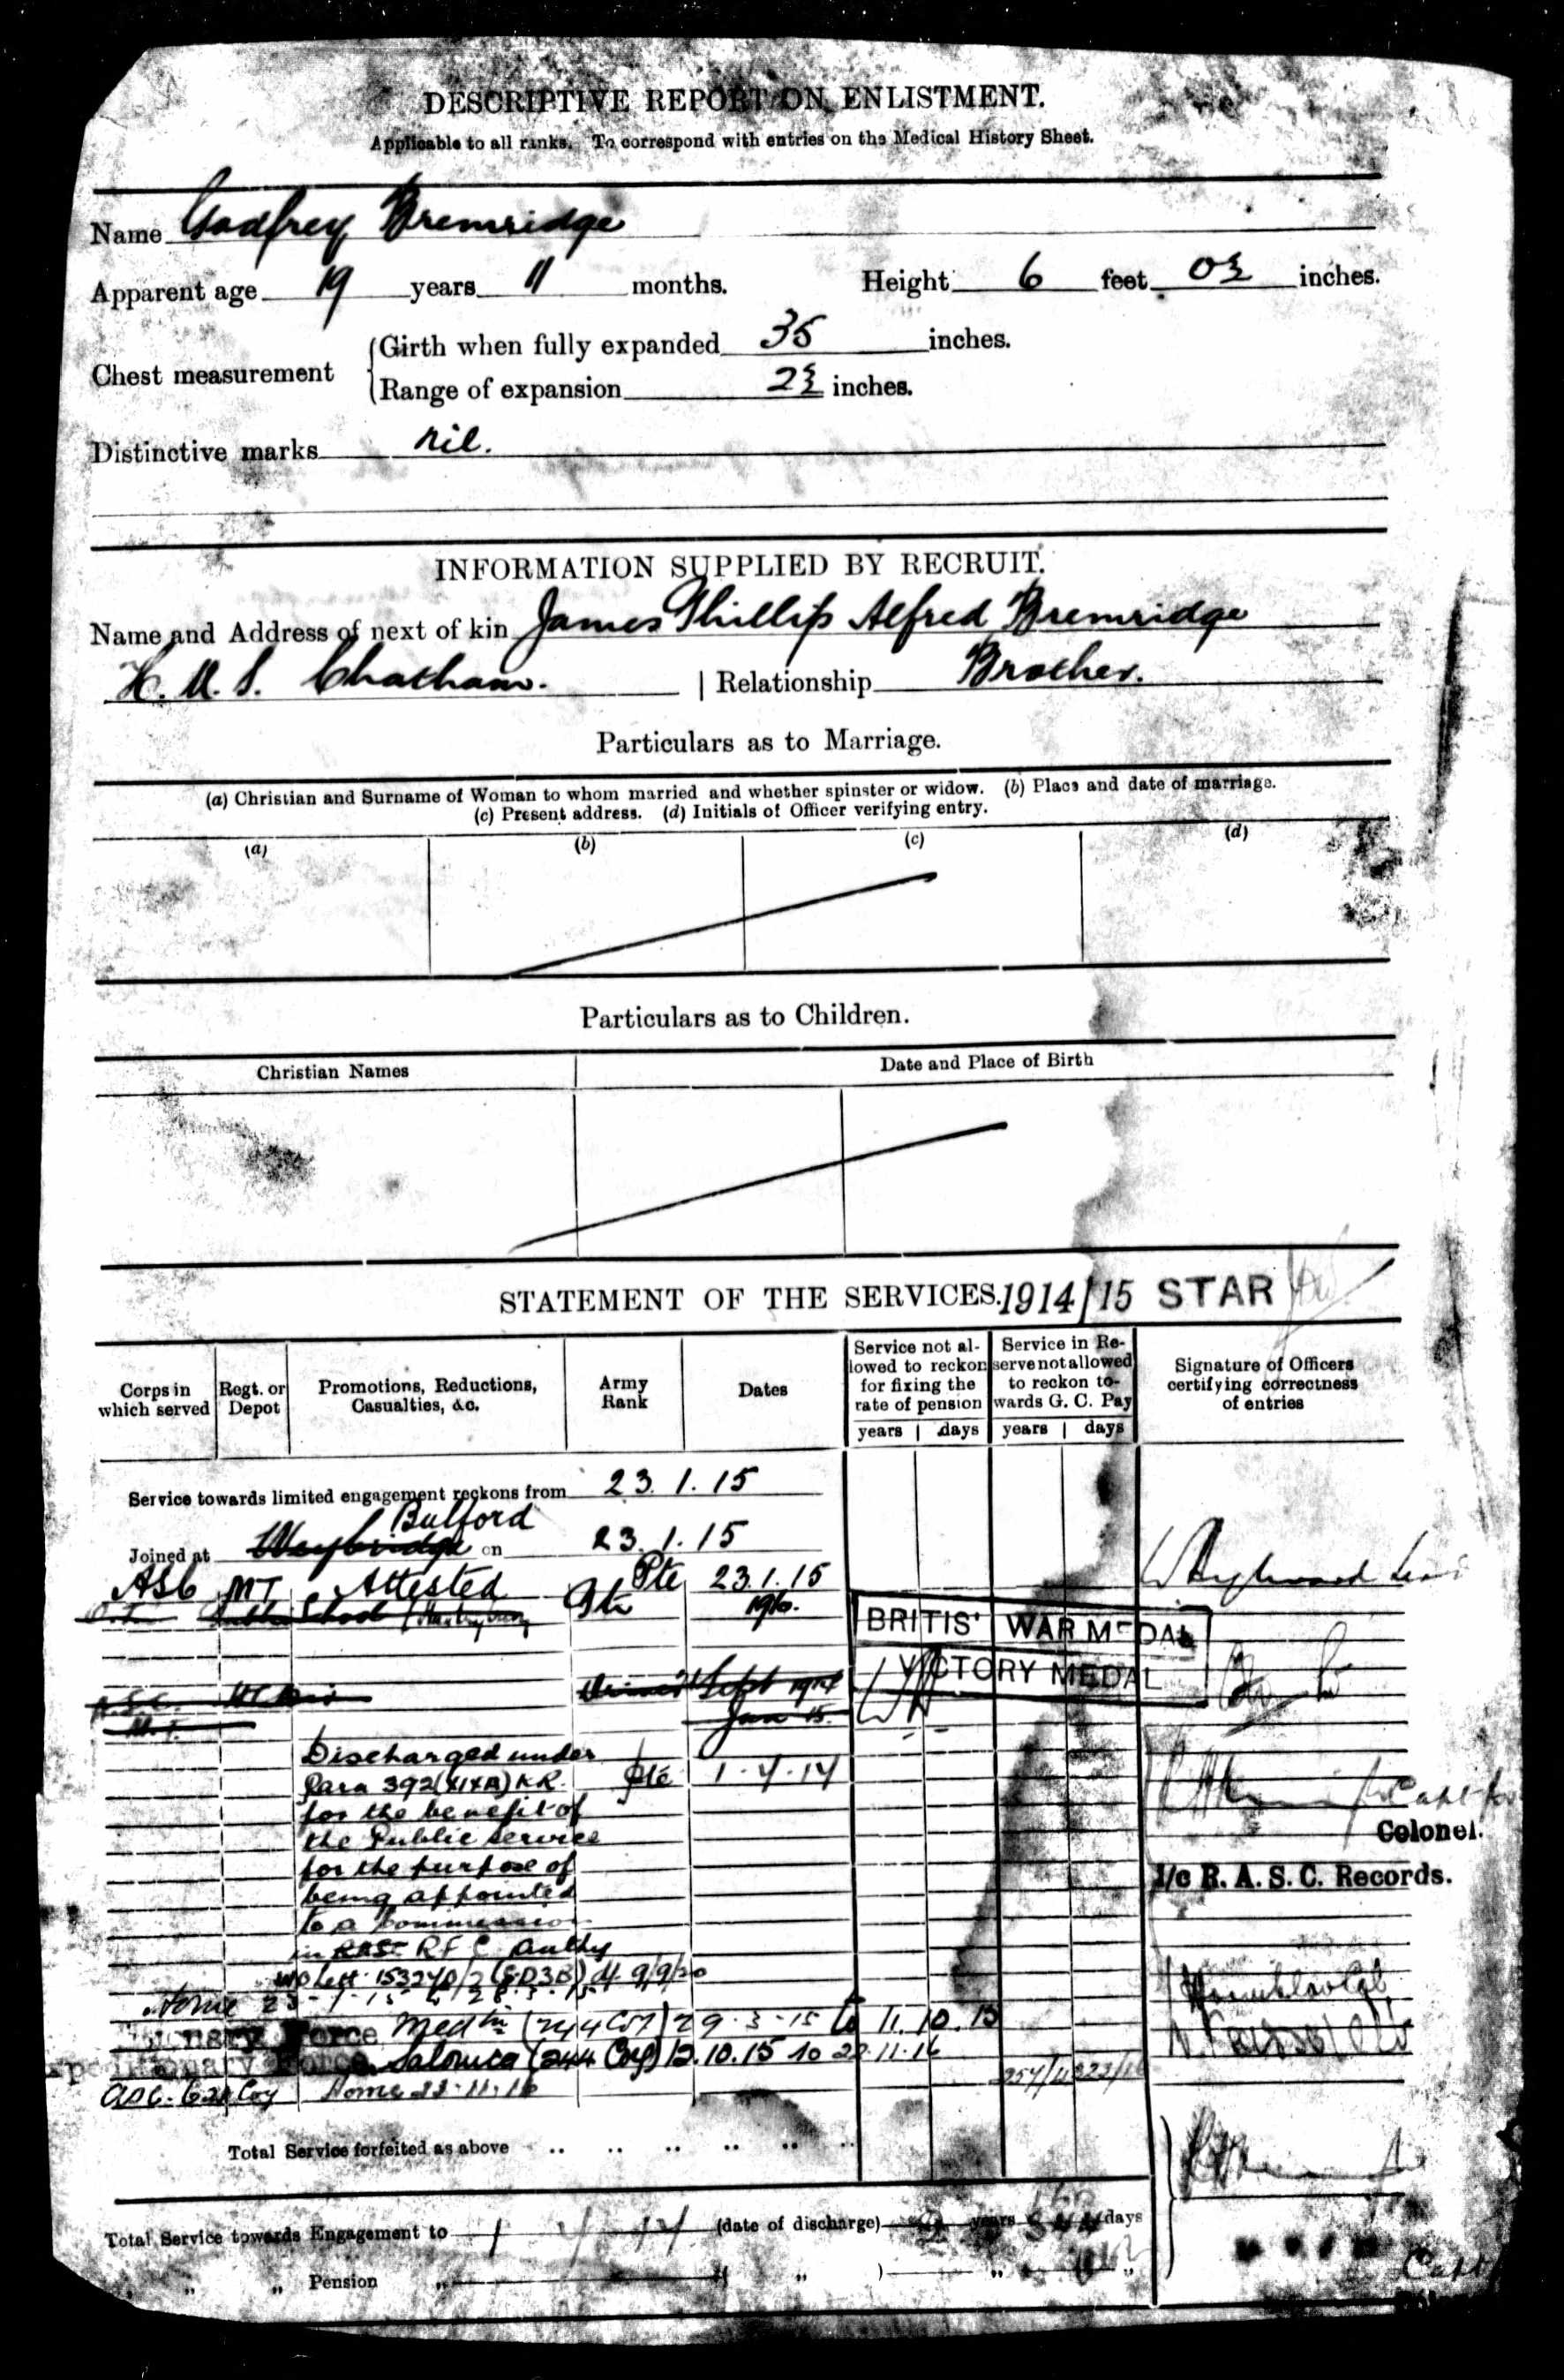 DESCRIPTIVE REPORT ON ENLISTMENT.
Applicable to all ranks. To correspond with entries on the Medical History Sheet.
Name Godfrey Bremridge
Apparent age 19 years 11 months. Height 6 feet 0½ inches.
Chest measurement
Girth when fully expanded 35 inches.
Range of expansion 2½ inches.
Distinctive marks nil.
INFORMATION SUPPLIED BY RECRUIT.
Name and Address of next of kin James Phillip Alfred Bremridge
H.M.S. Chatham. | Relationship Brother.
Particulars as to Marriage.
(a) Christian and Surname of Woman to whom married and whether spinster or widow. (b) Place and date of marriage.
(c) Present address. (d) Initials of Officer verifying entry.
(a) (b) (c) (d)
Particulars as to Children.
Christian Names Date and Place of Birth
STATEMENT OF THE SERVICES. 1914/15 STAR
Corps in which served
Regt. or Depot
Promotions, Reductions, Casualties, &c.
Army Rank
Dates
Service not allowed to reckon for fixing the rate of pension
years | days
Service in Reserve not allowed to reckon towards G. C. Pay
years | days
Signature of Officers certifying correctness of entries
Service towards limited engagement reckons from 23.1.15
Bulford
Joined at Weybridge on 23.1.15
ASC MT Attested Pte 23.1.15
BRITIS' WAR MEDAL
VICTORY MEDAL
Sept 1914
Jan 15.
Discharged under
Para 392 (XIXA) KR. Pte 1.4.17
for the benefit of
the Public Service
for the purpose of
being appointed
to a Commission
in RFC Authy
WO Lett. 153240/2 (SD3B) d/ 9/9/20
Capt for
Colonel.
I/c R. A. S. C. Records.
Home 23-1-15 to 28.3.15
Force Medtn (244 Coy) 29.3.15 to 11.10.15
Force Salonica (244 Coy) 12.10.15 to 22.11.16
ASC. Coy Home 23.11.16
Total Service forfeited as above .. .. .. .. .. ..
Total Service towards Engagement to 1 4 17 (date of discharge) years days
„ „ Pension „ ( „ ) „ „
Capt